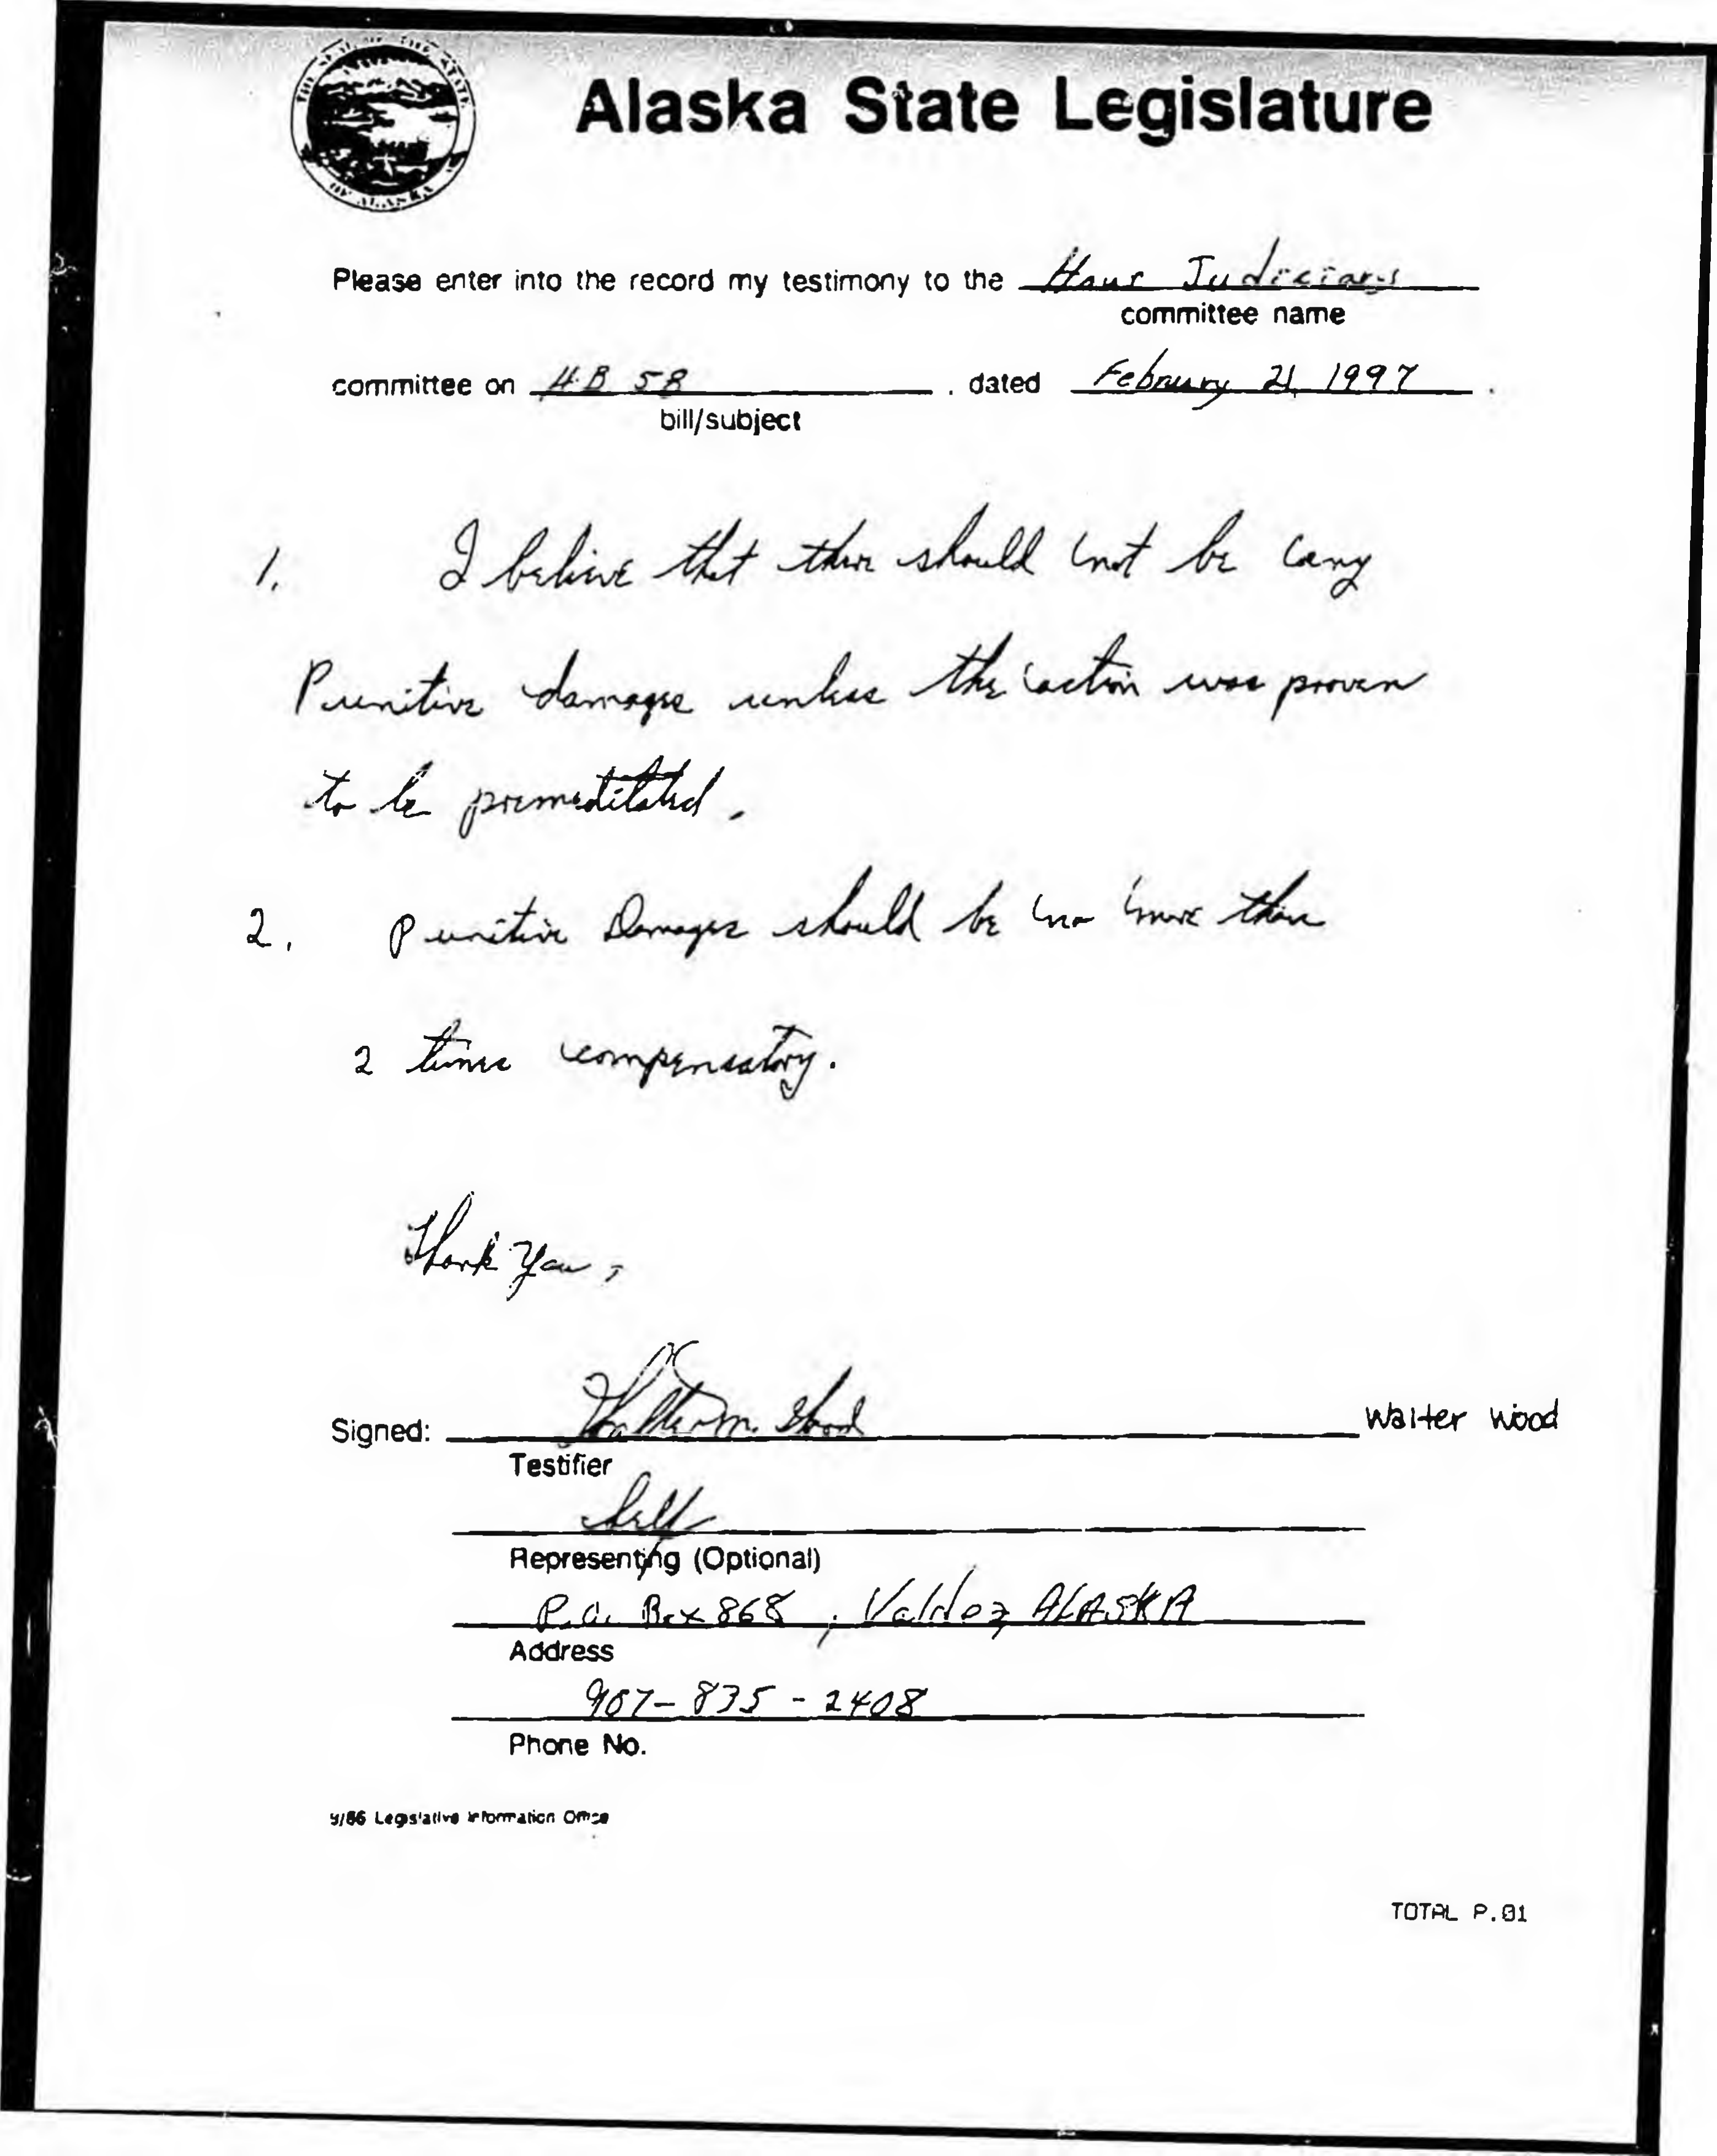 THE SEAL OF THE STATE
OF ALASKA
Alaska State Legislature
Please enter into the record my testimony to the Hous Judiciary
committee name
committee on H.B 58 , dated February 21, 1997 .
bill/subject
1. I believe that there should not be any
Punitive damages unless the action was proven
to be premeditated.
2. Punitive Damages should be no more than
2 times compensatory.
Thank You,
Signed: Walter M. Wood Walter Wood
Testifier
Self
Representing (Optional)
P.O. Box 868 , Valdez, ALASKA
Address
907-835-2408
Phone No.
9/86 Legislative Information Office
TOTAL P.01